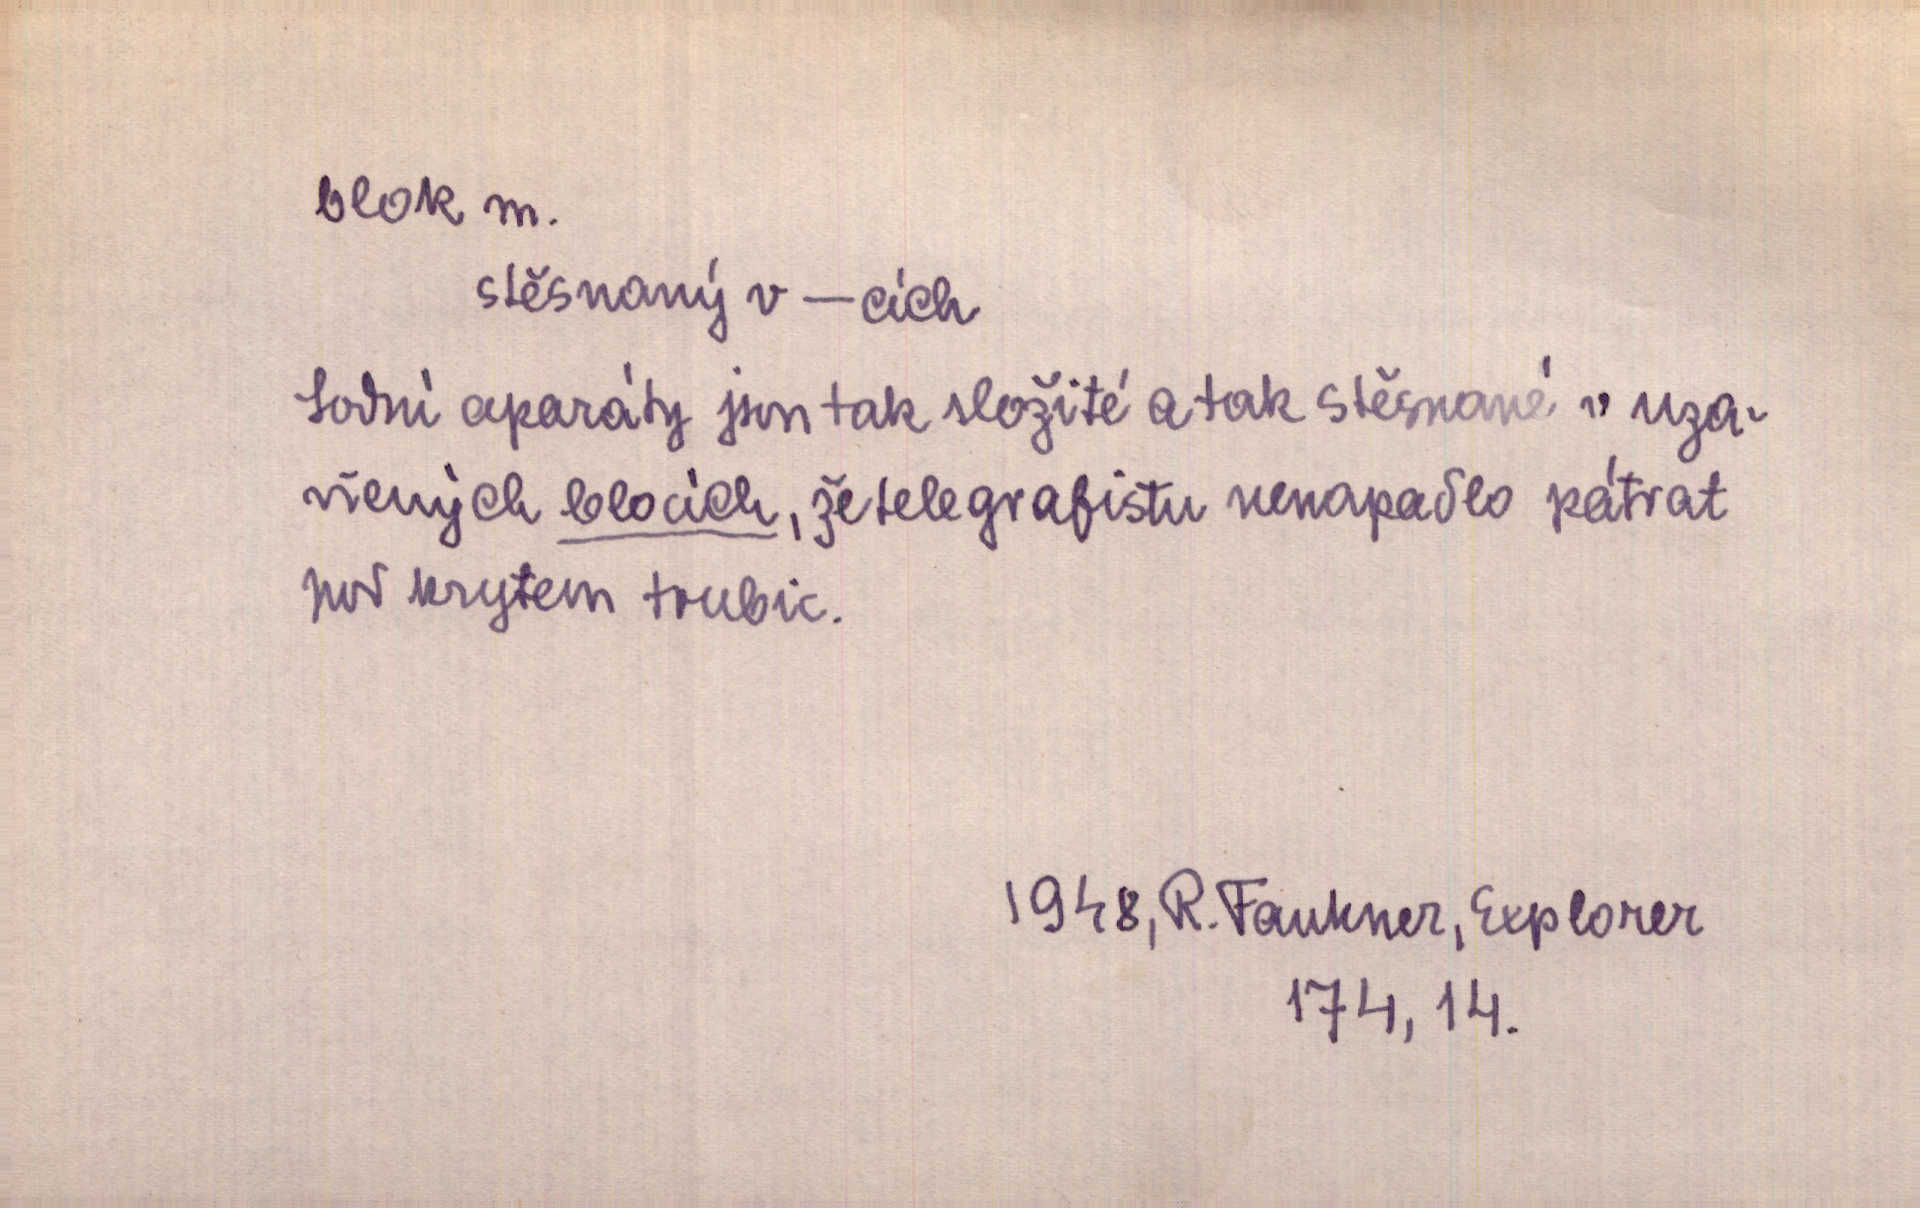 blok m.
stěsnaný v —cích
Lodní aparáty jsou tak složité a tak stěsnané v uza-
vřených blocích, že telegrafistu nenapadlo pátrat
pod krytem trubic.
1948, R. Faukner, Explorer
174, 14.